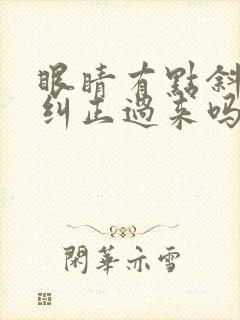 眼睛有點斜
糾正過來吗
閑華亦雪